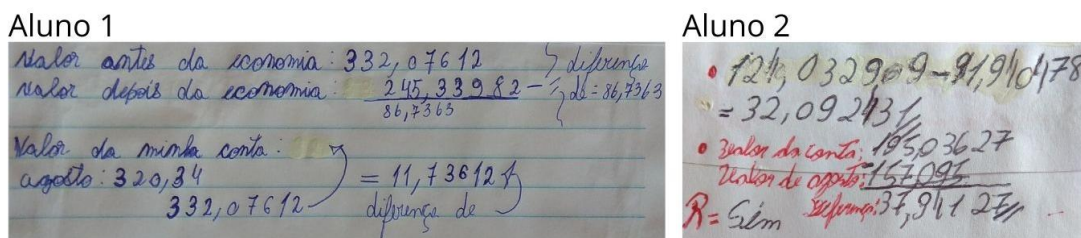 Aluno 1
Valor antes da economia: 332,07612
Valor depois da economia: 245,33982 - = diferença de = 86,7363
86,7363
Valor da minha conta:
agosto: 320,34 = 11,73612
332,07612 diferença de
Aluno 2
• 124,032909-91,940478
= 32,092431
• Valor da conta: 195,03627
Valor de agosto: -157,095
R= Sim Diferença: 37,94127